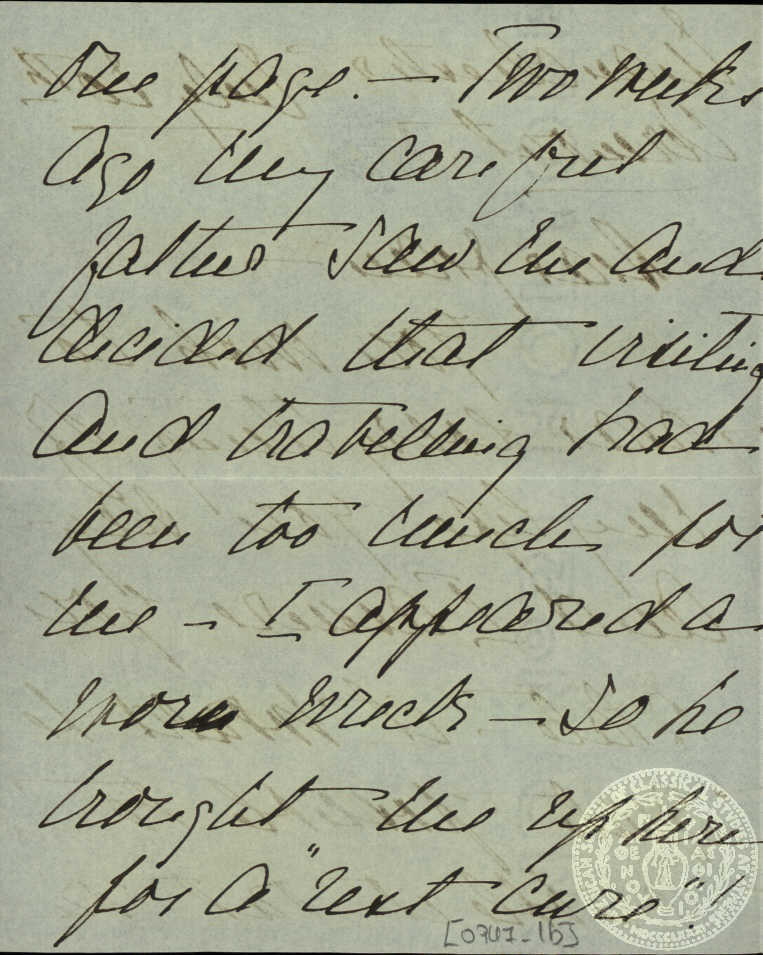 one page. — Two weeks
ago my careful
father saw me and
decided that visiting
and travelling had
been too much for
me – I appeared a
worn wreck – So he
brought me up here
for a "rest cure"!
[0741_1b]